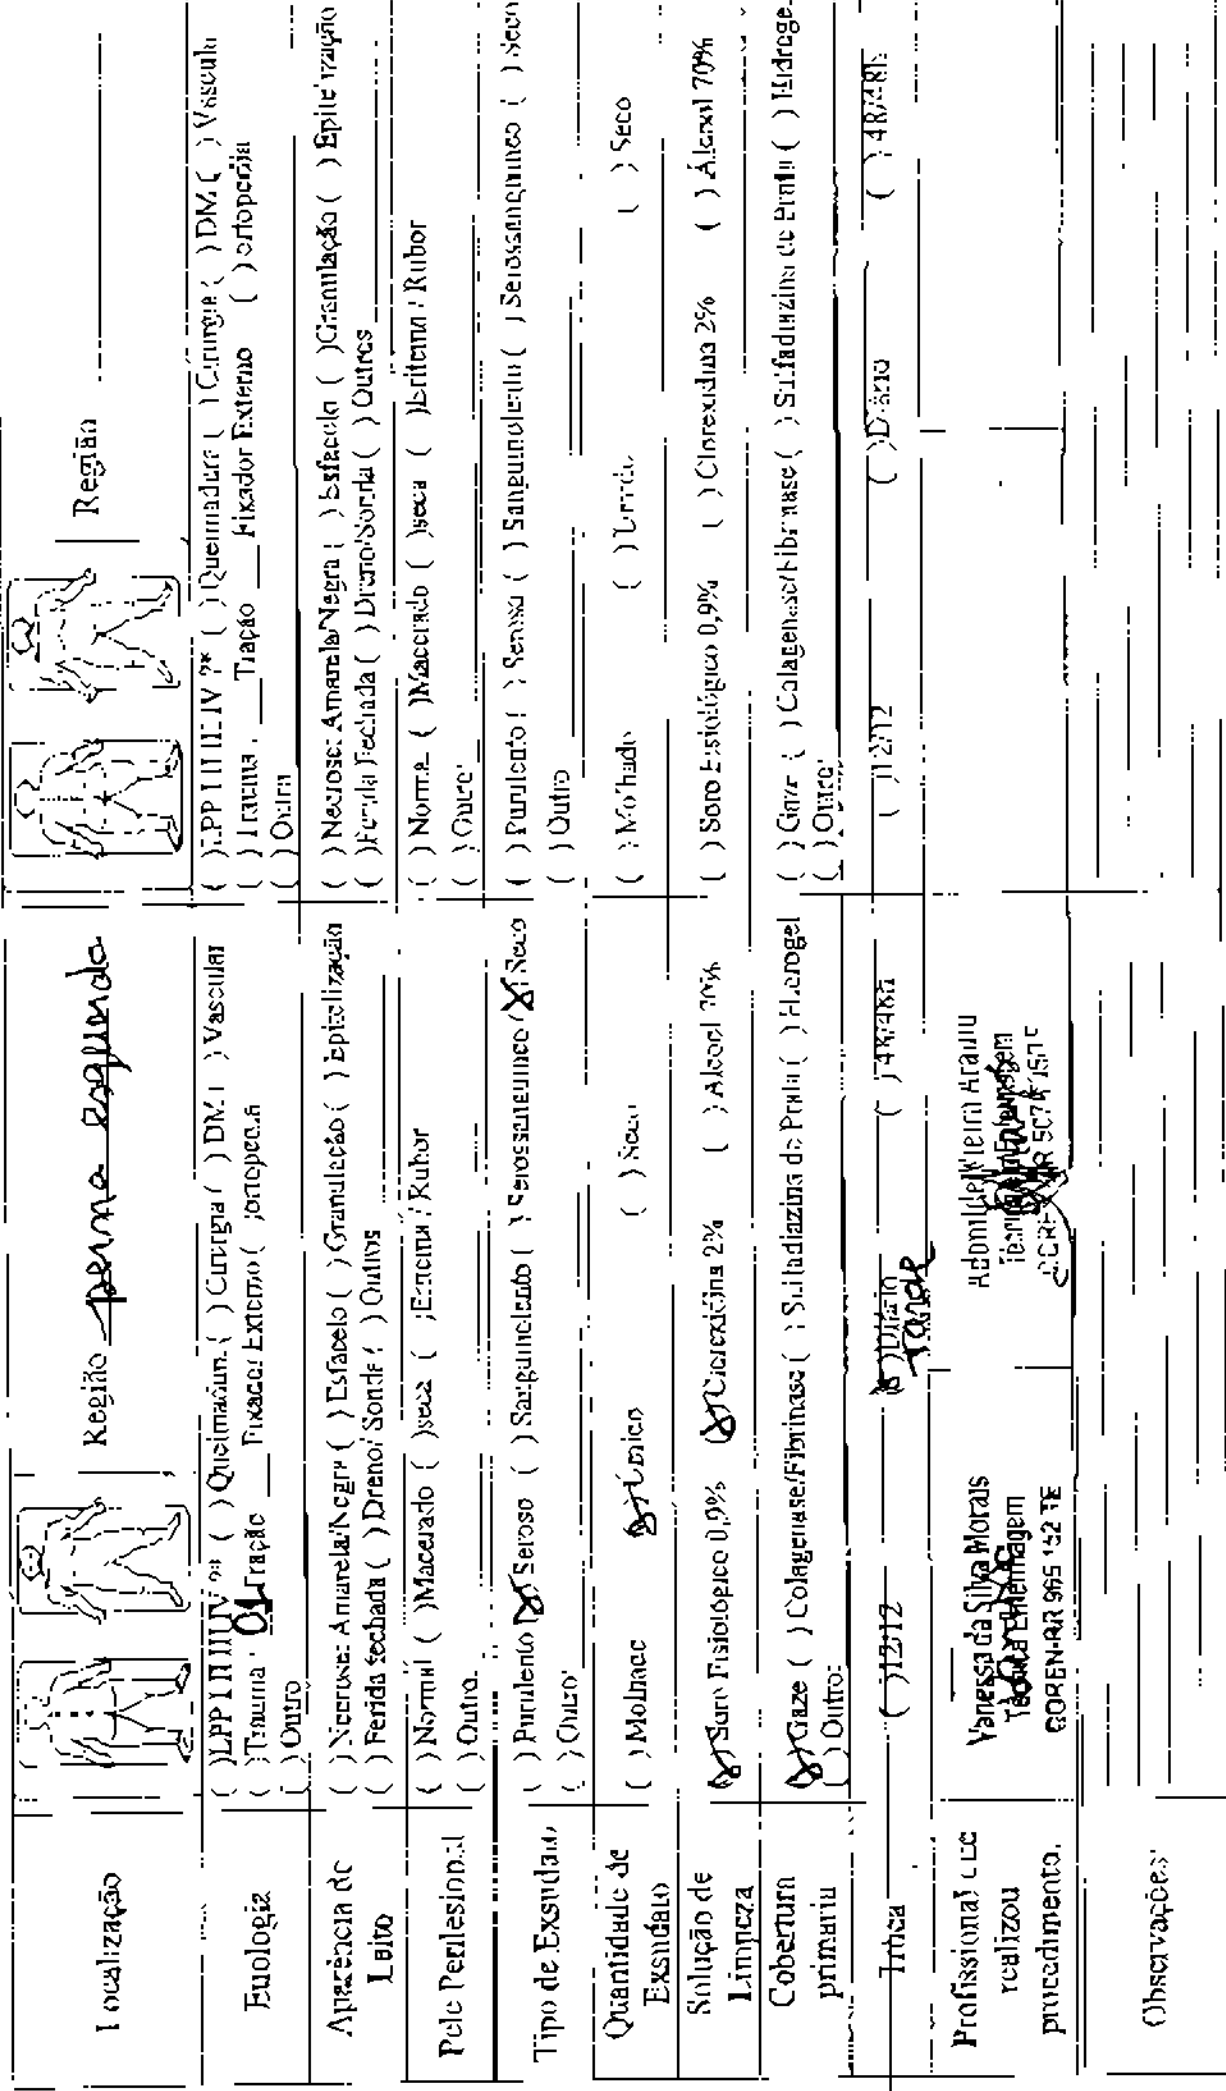 Localização
Região perna esquerda
Região
Etiologia
( )LPP I II III IV ?* ( ) Queimadura ( ) Cirurgia ( ) DM ( ) Vascular
( )Trauma 01 Tração ___ Fixador Externo ( )ortopedia
( ) Outro
( )LPP I II III IV ?* ( ) Queimadura ( ) Cirurgia ( ) DM ( ) Vascula
( ) Trauma ___ Tração ___ Fixador Externo ( ) ortopedia
( ) Outro
Aparência do
Leito
( ) Necrose: Amarela/Negra ( ) Esfacelo ( ) Granulação ( ) Epitelização
( ) Ferida fechada ( ) Dreno/ Sonda ( ) Outros
( ) Necrose: Amarela/Negra ( ) Esfacelo ( )Granulação ( ) Epitelização
( )Ferida Fechada ( ) Dreno/Sonda ( ) Outros
Pele Perilesional
( ) Normal ( )Macerado ( )seca ( )Eritema / Rubor
( ) Outro
( ) Normal ( )Macerado ( )seca ( )Eritema / Rubor
( ) Outro
Tipo de Exsudato
( ) Purulento (x) Seroso ( ) Sanguinolento ( ) Serossanguineo (x) Seco
( ) Outro
( ) Purulento ( ) Seroso ( ) Sanguinolento ( ) Serossanguineo ( ) Seco
( ) Outro
Quantidade de
Exsudato
( ) Molhado (x) Úmido ( ) Seco
( ) Molhado ( ) Úmido ( ) Seco
Solução de
Limpeza
(x) Soro Fisiológico 0,9% (x) Clorexidina 2% ( ) Álcool 70%
( ) Soro Fisiológico 0,9% ( ) Clorexidina 2% ( ) Álcool 70%
Cobertura
primaria
(x) Gaze ( ) Colagenase/Fibrinase ( ) Sulfadiazina de Prata ( ) Hidrogel
( ) Outro:
( ) Gaze ( ) Colagenase/Fibrinase ( ) Sulfadiazina de Prata ( ) Hidroge
( ) Outro
Troca
( )12/12 (x)Diário ( ) 48/48h
Tarde
( )12/12 ( )Diário ( ) 48/48h
Profissional que
realizou
procedimento.
Vanessa da Silva Morais
Técnica Enfermagem
COREN-RR 965 152 TE
Vieira Araujo
Observações: